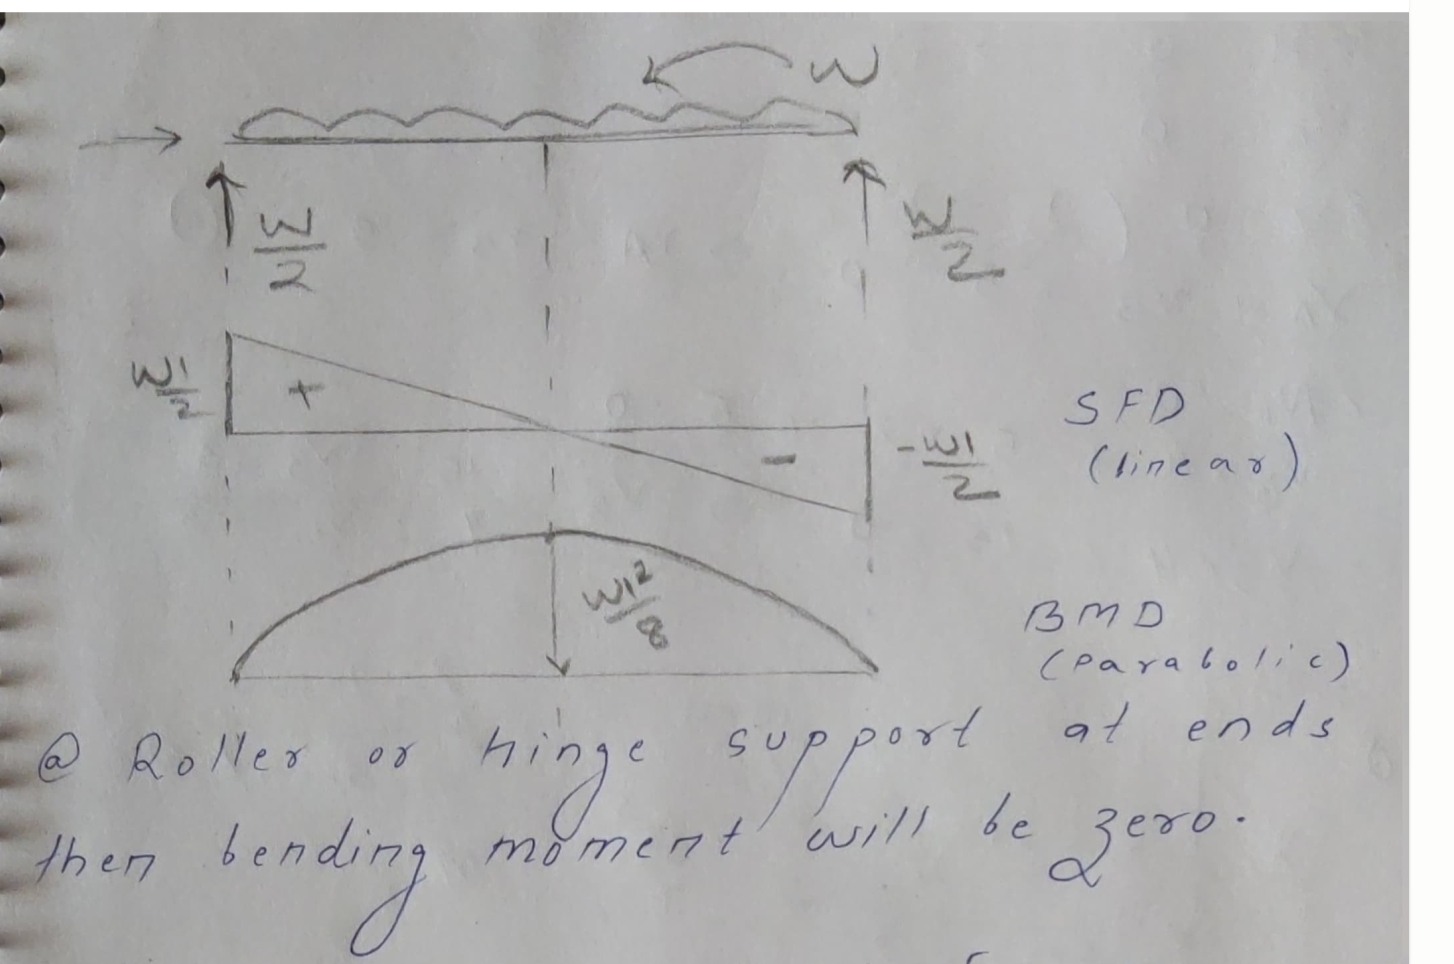 W
W/2
W/2
wl/2
+
-
-wl/2
SFD
(linear)
wl²/8
BMD
(Parabolic)
@ Roller or hinge support at ends
then bending moment will be zero.